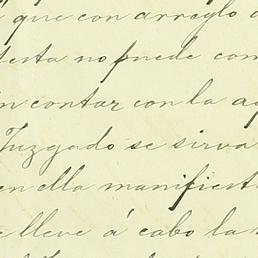 que con arreglo
testa no puede com
in contar con la ag
Juzgado se sirva
en ella manifiest
e lleve á cabo la